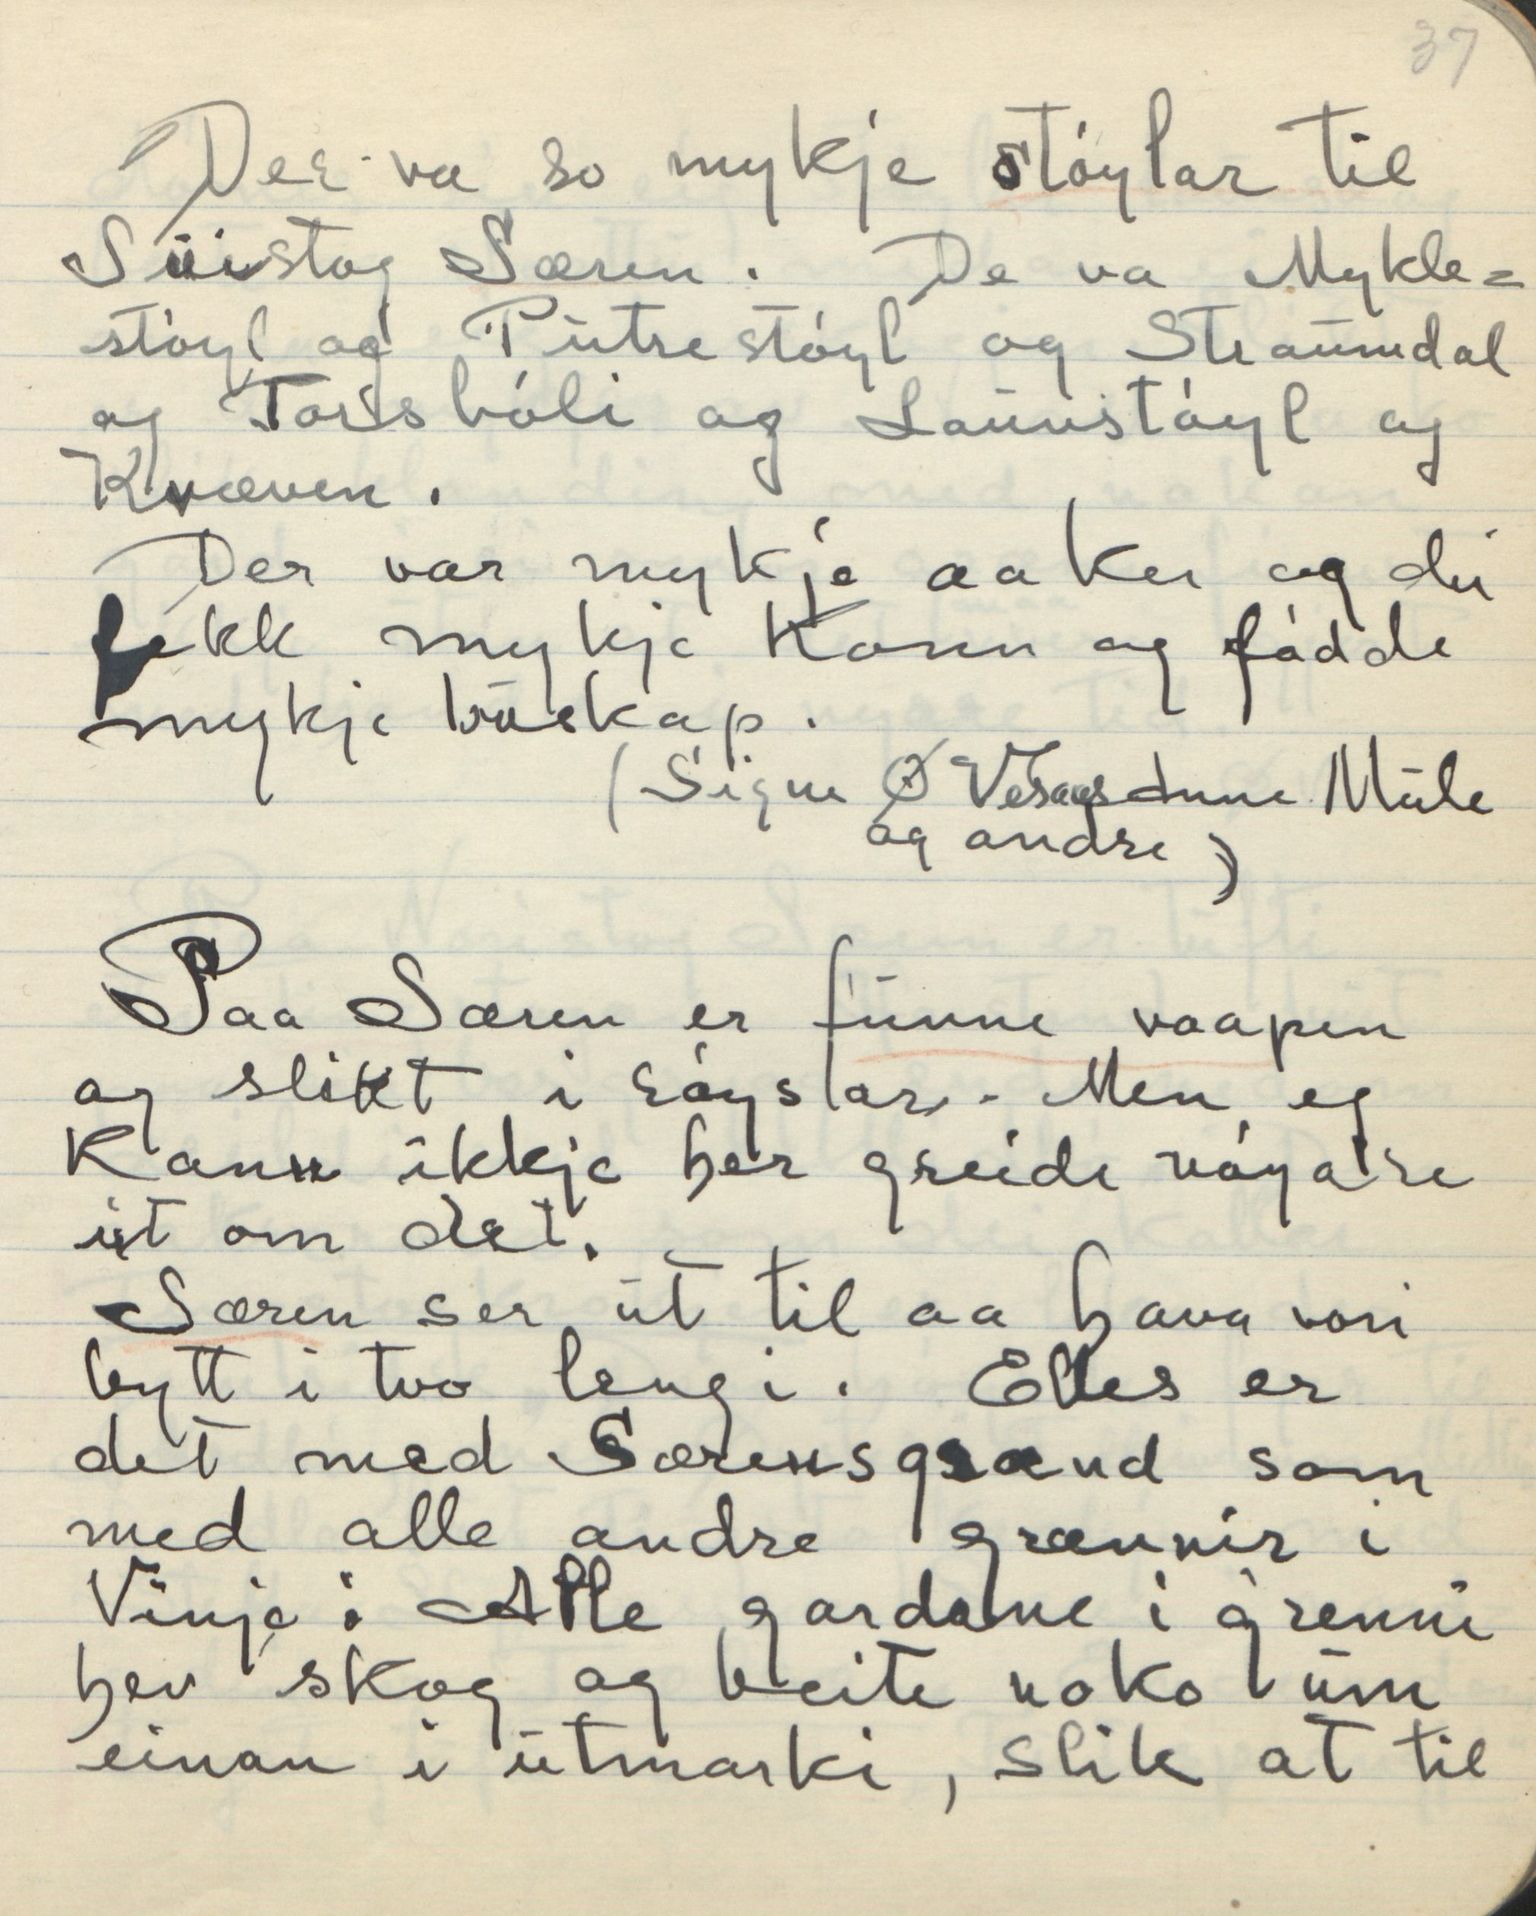 37
Der va so mykje stóylar til
Suistog Særen. De va Mykle=
stóyl og Putrestóyl og Straumdal
og Torsbóli og Launstóyl og
Kvæven.
Der var mykje aaker og dei
fekk mykje Konn og fódde
mykje buskap.
(Signe Ø Vesaas Anne Mule
og andre)
Paa Særen er funne vaapen
og slikt i róyslar. Men eg
Kann ikkje her greide nóyare
ut om det.
Særen ser ut til aa hava vori
bytt i tvo lengi. Elles er
det med Særensgrænd som
med alle andre grænnir i
Vinje: Alle gardane i grenni
hev skog og beite noko um
einan i utmarki, slik at til